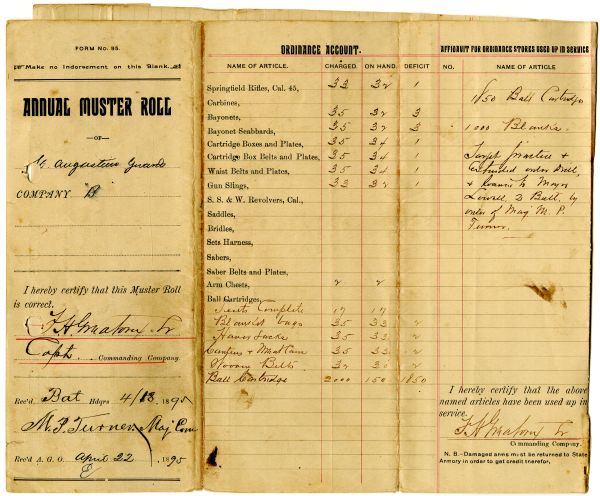 FORM No. 95.
Make no Indorsement on this Blank.
ANNUAL MUSTER ROLL
—OF—
St Augustine Guard
COMPANY B
I hereby certify that this Muster Roll
is correct.
Capt. Commanding Company.
Rec'd Bat Hdqrs 4/18 1895
M. P. Turner, Maj Com
Rec'd A. G. O. April 22 1895
ORDINANCE ACCOUNT.
NAME OF ARTICLE. CHARGED. ON HAND. DEFICIT
Springfield Rifles, Cal. 45, 33 32 1
Carbines,
Bayonets, 35 32 3
Bayonet Scabbards, 35 32 3
Cartridge Boxes and Plates, 35 34 1
Cartridge Box Belts and Plates, 35 34 1
Waist Belts and Plates, 35 34 1
Gun Slings, 33 32 1
S. S. & W. Revolvers, Cal.,
Saddles,
Bridles,
Sets Harness,
Sabers,
Saber Belts and Plates,
Arm Chests, 2 2
Ball Cartridges,
Tents Complete 17 17
Blanket bags 35 33 2
Haversacks 35 33 2
Canteens & Meat Can 35 33 2
Woven Belts 32 30 2
Ball Cartridge 2000 150 1850
AFFIDAVIT FOR ORDINANCE STORES USED UP IN SERVICE
NO. NAME OF ARTICLE
1850 Ball Cartridge
1000 Blanks.
Target practice &
Extended order Drill,
&
Lowell, 2 Batt, by
order of Maj M. P.
Turner.
I hereby certify that the above
named articles have been used up in
service.
Commanding Company.
N. B.—Damaged arms must be returned to State
Armory in order to get credit therefor.